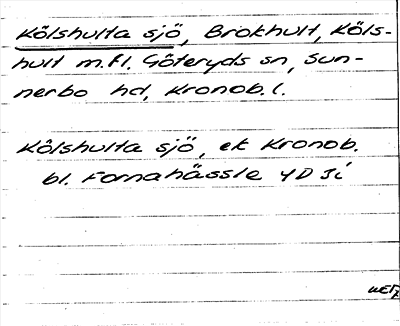 Kölshulta sjö, Brokhult, Köls-
hult m.fl. Göteryds sn, Sun-
nerbo hd, Kronob. l.
Kölshulta sjö, ek Kronob.
bl. Fornahässle 4D Si